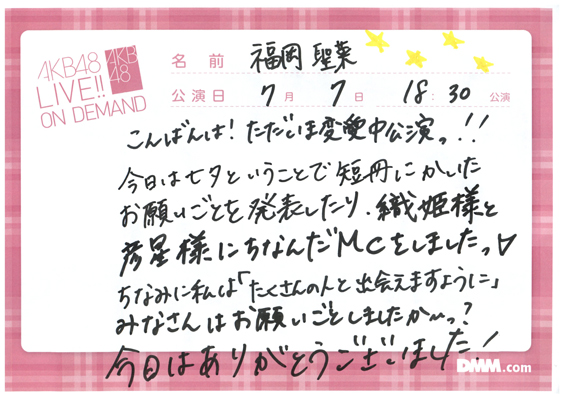 AKB48
LIVE!!
ON DEMAND
AKB
48
名前 福岡 聖菜
公演日 7月 7日 18:30 公演
こんばんは!ただいま恋愛中公演っ!!
今日は七夕ということで短冊にかいた
お願いごとを発表したり、織姫様と
彦星様にちなんだMCをしましたっ♡
ちなみに私は「たくさんの人と出会えますように」
みなさんはお願いごとしましたか〜っ?
今日はありがとうございました!
DMM.com